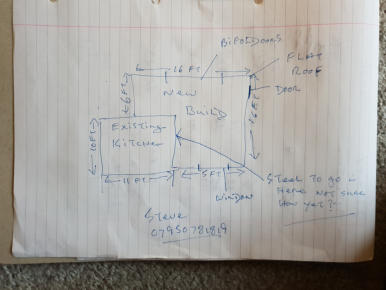 BiFold Doors
16 FT
FLAT
ROOF
DOOR
New
Build
6 FT
16 FT
Existing
Kitchen
10 FT
11 FT
5 FT
Window
Steel To go in
Here not sure
How yet?
Steve
07950781819